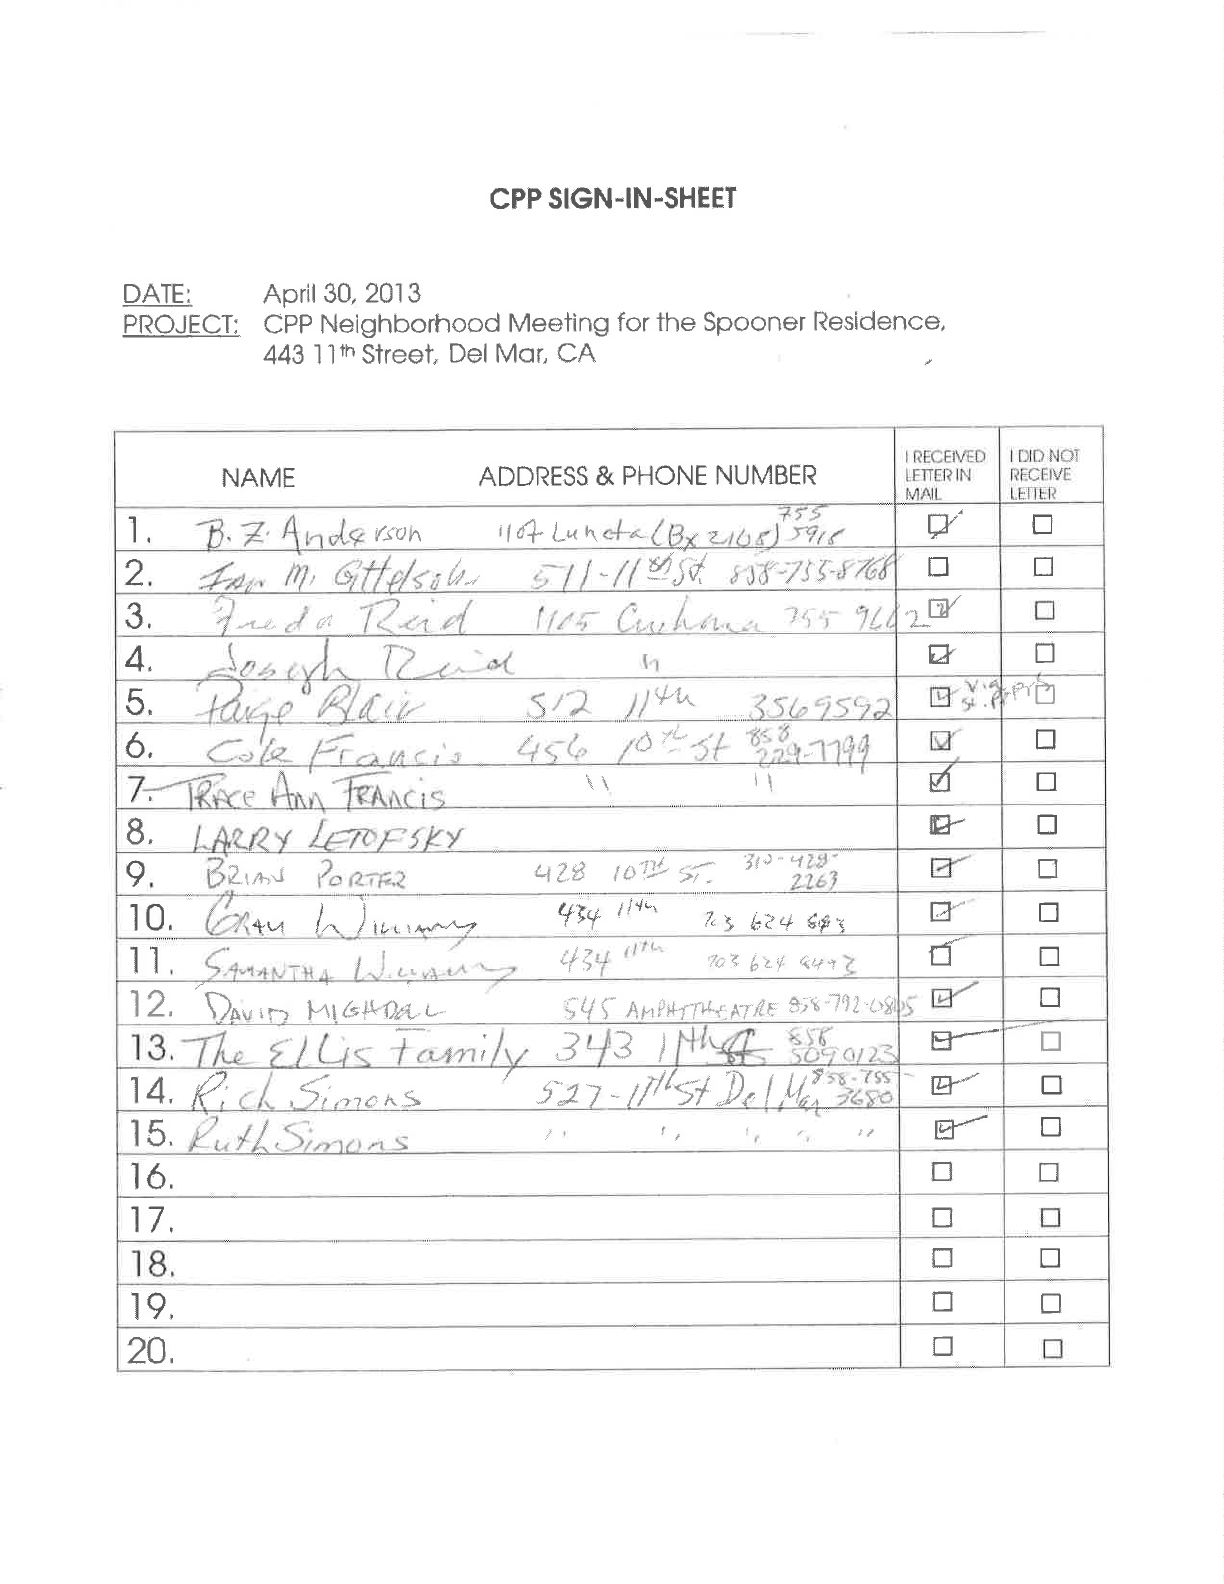 CPP SIGN-IN-SHEET
DATE: April 30, 2013
PROJECT: CPP Neighborhood Meeting for the Spooner Residence,
443 11th Street, Del Mar, CA
NAME ADDRESS & PHONE NUMBER I RECEIVED LETTER IN MAIL I DID NOT RECEIVE LETTER
1. B. Z. Anderson 1107 Luneta (Bx 2168) 755 5918
2. Ian M. Gittelsohn 511-11th St. 858-755-8768
3. Freda Reid 1105 Cuchara 755 9662
4. Joseph Reid "
5. Paige Blair 512 11th 3569592 via St. P
6. Cole Francis 456 10th St 858 229-7799
7. TRACE ANN FRANCIS " "
8. LARRY LETOFSKY
9. BRIAN PORTER 428 10TH ST. 310-428-2263
10. GRAY WILLIAMS 434 11th 703 624
11. SAMANTHA WILLIAMS 434 11th 703 624 9493
12. DAVID MIGHDALL 545 AMPHITHEATRE 858-792-0805
13. The Ellis Family 343 11th St 858 509 0123
14. Rich Simons 527-11th St Del Mar 858-755-3680
15. Ruth Simons " " " " "
16.
17.
18.
19.
20.